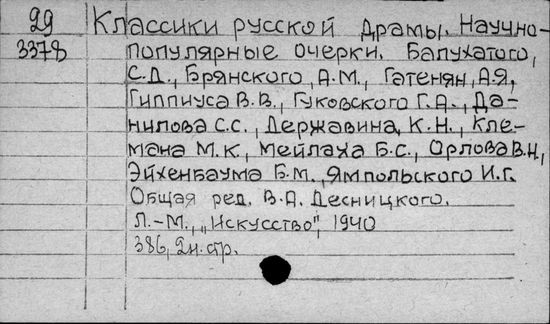 29 Классики русской драмы. Научно-
3378 популярные очерки. Балухатого,
С.Д., Брянского, А.М., Гатенян, А.Я,
Гиппиуса В.В., Гуковского Г.А., Да-
нилова С.С., Державина, К.Н., Кле-
мана М.К., Мейлаха Б.С., Орлова В.Н,
Эйхенбаума Б.М., Ямпольского И.Г.
Общая ред. В.А. Десницкого.
Л.-М., „Искусство", 1940
386, 2н. стр.